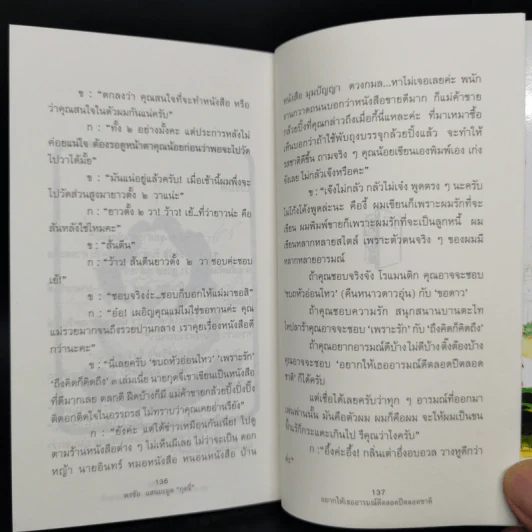 ช : "ตกลงว่า คุณสนใจที่จะทำหนังสือ หรือ
ว่าคุณสนใจในตัวผมกันแน่ครับ"
ก : "ทั้ง ๒ อย่างมั้งคะ แต่ประการหลังไม่
ค่อยแน่ใจ ต้องรอดูหน้าตาคุณน้อยก่อนว่าพอจะไปวัด
ไปวาได้มั้ย"
ช : "มันแน่อยู่แล้วครับ! เมื่อเช้านี้ผมพึ่งจะ
ไปวัดส่วนสูงมายาวตั้ง ๒ วาแน่ะ"
ก : "ยาวตั้ง ๒ วา! ว้าว! เอ๊..ที่ว่ายาวน่ะ คือ
สันหลังใช่ไหมคะ"
ช : "สันตีน"
ก : "ว้าว! สันตีนยาวตั้ง ๒ วา ชอบค่ะชอบ
เย้!"
ช : "ชอบจริงง่ะ...ชอบก็บอกให้แม่มาขอสิ"
ก : "อ๋อ! เผอิญคุณแม่ไม่ใช่ขอทานค่ะ คุณ
แม่รวยมากจนถึงรวยปานกลาง เราคุยเรื่องหนังสือดี
กว่านะคะ"
ช : "นี่เลยครับ 'ขบถหัวอ่อนไหว' 'เพราะรัก'
'ถึงคิดก็คิดถึง' ๓ เล่มเนี่ย นายกุดจี่เขาเขียนเป็นหนังสือ
ที่ดีมากเลย ตลกดี ฝืดบ้างก็มี แม่ค้าขายกล้วยปิ้งปิ้งปิ้ง
ติดอกติดใจในอรรถรส ไม่ทราบว่าคุณเคยอ่านรึยัง"
ก : "ยังค่ะ แต่ได้ข่าวเหมือนกันเพี่ย! ไปดู
ตามร้านหนังสือต่าง ๆ ไม่เห็นมีเลย ไม่ว่าจะเป็น ดอก
หญ้า นายอินทร์ หมอหนังสือ หนอนหนังสือ บ้าน
136
พรชัย แสนยะมูล "กุดจี่"
หนังสือ มุมปัญญา ดวงกมล...หาไม่เจอเลยค่ะ พนัก
งานกวาดถนนบอกว่าหนังสือขายดีมาก ก็แม่ค้าขาย
กล้วยปิ้งที่คุณกล่าวถึงเมื่อกี้นี่แหละค่ะ ที่มาเหมาซื้อ
เห็นบอกว่าถ้าใช้พับถุงบรรจุกล้วยปิ้งแล้ว จะทำให้
รสชาติดีขึ้น ถามจริง ๆ คุณน้อยเขียนเองพิมพ์เอง เก่ง
จังเลย ไม่กลัวเจ๊งหรือคะ"
ช : "เจ๊งไม่กลัว กลัวไม่เจ๋ง พูดตรง ๆ นะครับ
ไม่โก้งโค้งพูดล่ะนะ คืองี้ ผมเขียนก็เพราะผมรักที่จะ
เขียน ผมพิมพ์ขายก็เพราะผมรักที่จะเป็นลูกหนี้ ผม
เขียนหลากหลายสไตล์ เพราะตัวตนจริง ๆ ของผมมี
หลากหลายอารมณ์
ถ้าคุณชอบจริงจัง โรแมนติก คุณอาจจะชอบ
'ขบถหัวอ่อนไหว' (คืนหนาวดาวอุ่น) กับ 'ขอดาว'
ถ้าคุณชอบความรัก สนุกสนานบานตะไท
ไหปลาร้าคุณอาจจะชอบ 'เพราะรัก' กับ 'ถึงคิดก็คิดถึง'
ถ้าคุณอยากอารมณ์ดีบ้างไม่ดีบ้างติ๊งต๊องบ้าง
คุณอาจจะชอบ 'อยากให้เธออารมณ์ดีตลอดปีตลอด
ชาติ' ก็ได้ครับ
แต่เชื่อได้เลยครับว่าทุก ๆ อารมณ์ที่ออกมา
เล่นพ่านนั้น มันคือตัวผม ผมก็คือผม จะให้ผมเป็นขน
รักแร้ก็กระแดะเกินไป รึคุณว่าไงครับ"
ก : "อึ้งค่ะอึ้ง! กลิ่นเต่าอึ้งอบอวล วางหูดีกว่า
137
อยากให้เธออารมณ์ดีตลอดปีตลอดชาติ